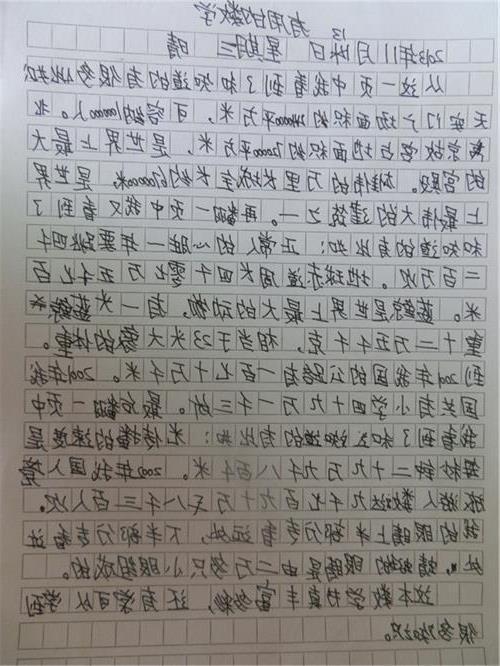 有用的数学
2013年11月13日 星期三 晴
从这一页中我看到了和知道的有很多,比如
天安门广场面积约440000平方米,可容纳1000000人。北
京故宫占地面积约720000平方米,是世界上最大
的宫殿。雄伟的万里长城全长约6700000米。是世界
上最伟大的建筑之一。再翻一页中我又看到了
和知道的有比如:正常人的心脏一年要跳四千
二百万次。地球赤道周长四千零七万五千七百
米。蓝鲸是世界上最大的动物,有一头蓝鲸
重十二万五千千克,相当于25头大象的体重。
到2002年我国的公路有一百七十万千米。2002年我
国共有小学四十九万一千三所。最后翻一页中
我看到了和又知道的有比如:光传播的速度是
每秒钟二十九万九千八百千米。2002年我国入境
旅游人数达九千七百九十万八千三百人次。
蜓的眼睛上半部分专看远处,下半部分专看近
处,蜻蜓的眼睛是由二万多只小眼组成的。
这本数学书真丰富多彩,还有可以学到
很多知识。